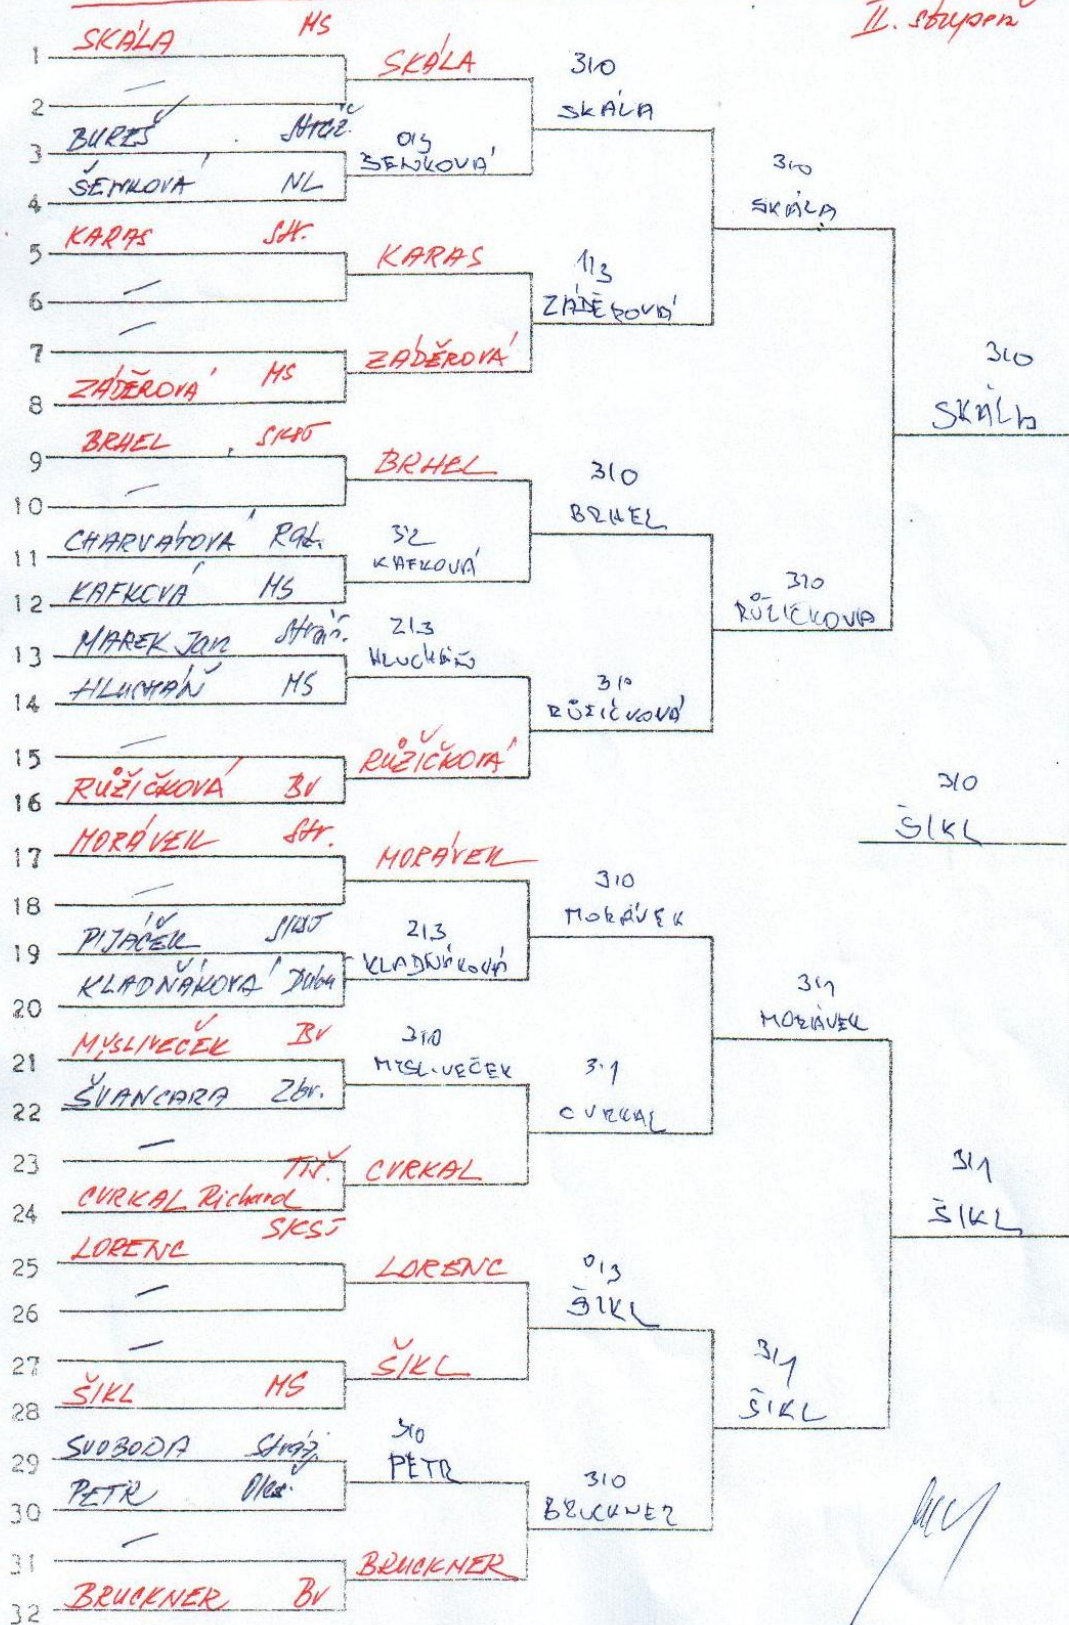 II. stupeň
1 SKÁLA MS
2 —
3 BUREŠ Stráž.
4 ŠENKOVÁ NL
5 KARAS Str.
6 —
7 —
8 ZÁDĚROVÁ MS
9 BRHEL SKST
10 —
11 CHARVÁTOVÁ Ral.
12 KAFKOVÁ MS
13 MAREK Jan Stráž.
14 HLUCHÁŇ MS
15 —
16 RŮŽIČKOVÁ BV
17 MORÁVEK Str.
18 —
19 PIJÁČEK SKST
20 KLADŇÁKOVÁ Dubá
21 MYSLIVEČEK BV
22 ŠVANCARA Zbr.
23 —
24 CVRKAL Richard TIŠ.
25 LORENC SKST
26 —
27 —
28 ŠIKL MS
29 SVOBODA Stráž.
30 PETR Oks.
31 —
32 BRUCKNER BV
SKÁLA
0:3
ŠENKOVÁ
KARAS
ZÁDĚROVÁ
BRHEL
3:2
KAFKOVÁ
2:3
HLUCHÁŇ
RŮŽIČKOVÁ
MORÁVEK
2:3
KLADŇÁKOVÁ
3:0
MYSLIVEČEK
CVRKAL
LORENC
ŠIKL
3:0
PETR
BRUCKNER
3:0
SKÁLA
1:3
ZÁDĚROVÁ
3:0
BRHEL
3:0
RŮŽIČKOVÁ
3:0
MORÁVEK
3:1
CVRKAL
0:3
ŠIKL
3:0
BRUCKNER
3:0
SKÁLA
3:0
RŮŽIČKOVÁ
3:1
MORÁVEK
3:1
ŠIKL
3:0
SKÁLA
3:1
ŠIKL
3:0
ŠIKL